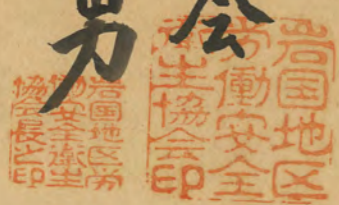 会
岩国地区
労働安全
衛生協会印
岩国地区労
働安全衛生
協会長之印